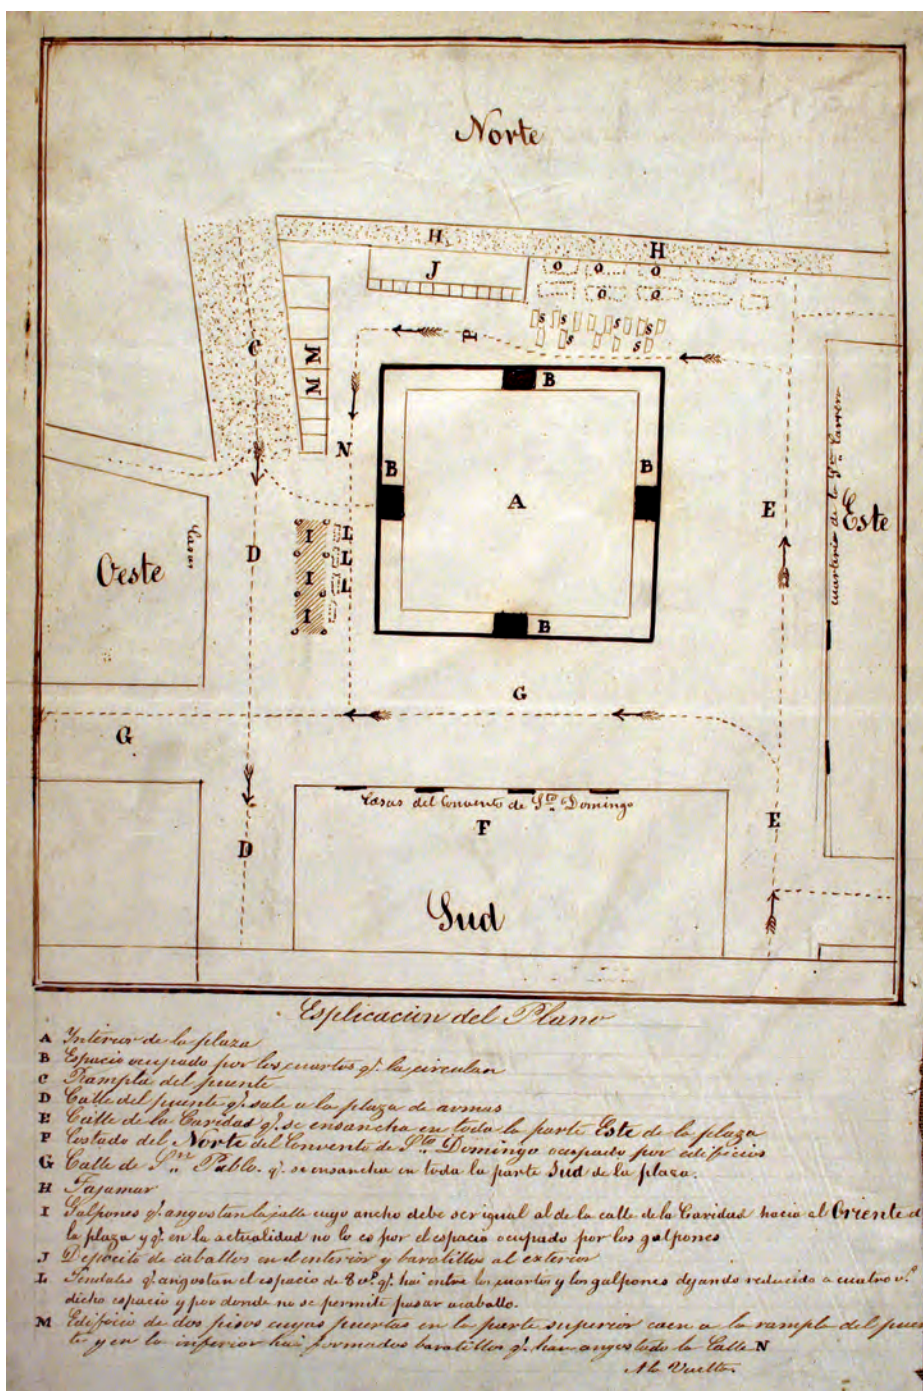 Norte
H H
J
O O O
O O
S S S
S S
P
C
M
M
N
B
B B
A
E
martinio de la Sra Carrera
Este
Casas
Oeste
D
I L
L
I L
I
B
G
G
Casas del Convento de Sto Domingo
F
E
D
Sud
Esplicacion del Plano
A Ynterior de la plaza
B Espacio ocupado por los cuartos q. la circulan
C Rampla del puente
D Calle del puente q. sale a la plaza de armas
E Calle de la Caridad q. se ensancha en toda la parte Este de la plaza
F Costado del Norte del Convento de Sto Domingo ocupado por edificios
G Calle de Sn Pablo. q. se ensancha en toda la parte Sud de la plaza.
H Tajamar
I Galpones q. angostan la calle cuyo ancho debe ser igual al de la calle de la Caridad hacia el Oriente d
la plaza y q. en la actualidad no lo es por el espacio ocupado por los galpones
J Deposito de caballos en el interior y baratillos al exterior
L Tendales q. angostan el espacio de 8 vs. q. hai entre los cuartos y los galpones dejando reducido a cuatro vs.
dicho espacio y por donde no se permite pasar acaballo.
M Edificio de dos pisos cuyas puertas en la parte superior caen a la rampla del puen
te y en la inferior hai formados baratillos q. han angostado la Calle N
A la Vuelta